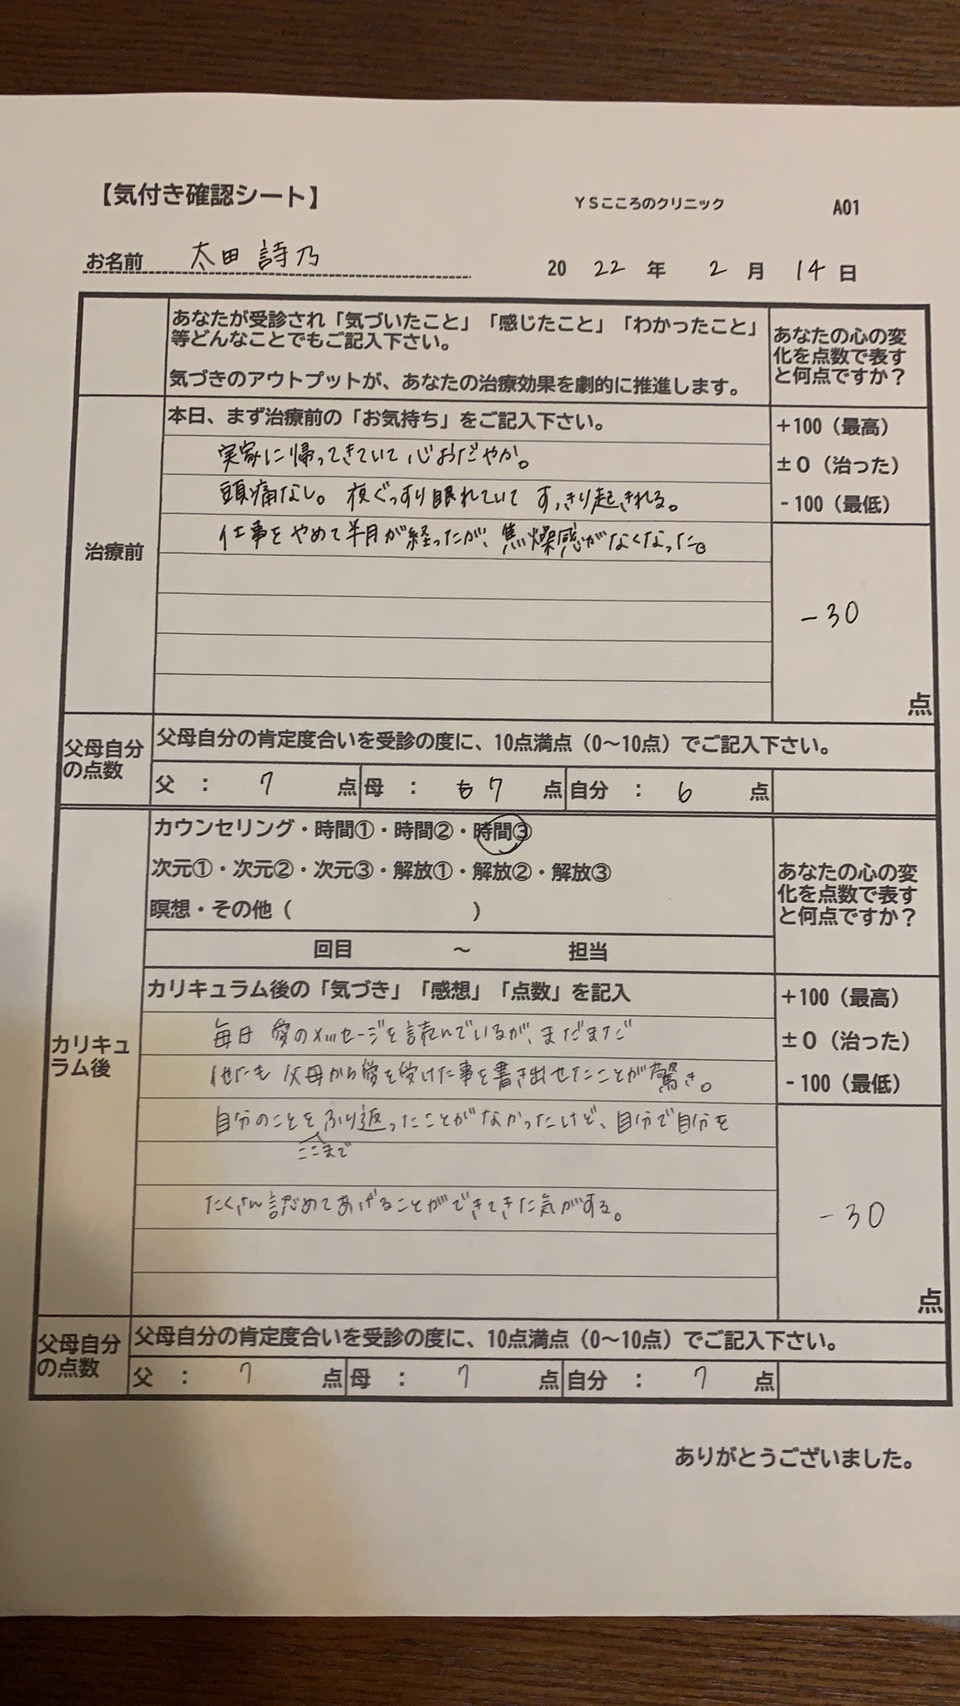 【気付き確認シート】
YSこころのクリニック
A01
お名前 太田 詩乃
20 22 年 2 月 14 日
あなたが受診され「気づいたこと」「感じたこと」「わかったこと」
等どんなことでもご記入下さい。
気づきのアウトプットが、あなたの治療効果を劇的に推進します。
あなたの心の変
化を点数で表す
と何点ですか？
治療前
本日、まず治療前の「お気持ち」をご記入下さい。
実家に帰ってきていて心おだやか。
頭痛なし。夜ぐっすり眠れていてすっきり起きれる。
仕事をやめて半月が経ったが、焦燥感がなくなった。
+100（最高）
±0（治った）
-100（最低）
-30
点
父母自分
の点数
父母自分の肯定度合いを受診の度に、10点満点（0～10点）でご記入下さい。
父 ： 7 点 母 ： 7 点 自分 ： 6 点
カリキュ
ラム後
カウンセリング・時間①・時間②・時間③
次元①・次元②・次元③・解放①・解放②・解放③
瞑想・その他（ ）
回目 ～ 担当
あなたの心の変
化を点数で表す
と何点ですか？
カリキュラム後の「気づき」「感想」「点数」を記入
毎日 愛のメッセージを読んでいるが、まだまだ
他にも 父母から愛を受けた事を書き出せたことが驚き。
自分のことをふり返ったことがなかったけど、自分で自分を
ここまで
たくさん認めてあげることができてきた気がする。
+100（最高）
±0（治った）
-100（最低）
-30
点
父母自分
の点数
父母自分の肯定度合いを受診の度に、10点満点（0～10点）でご記入下さい。
父 ： 7 点 母 ： 7 点 自分 ： 7 点
ありがとうございました。